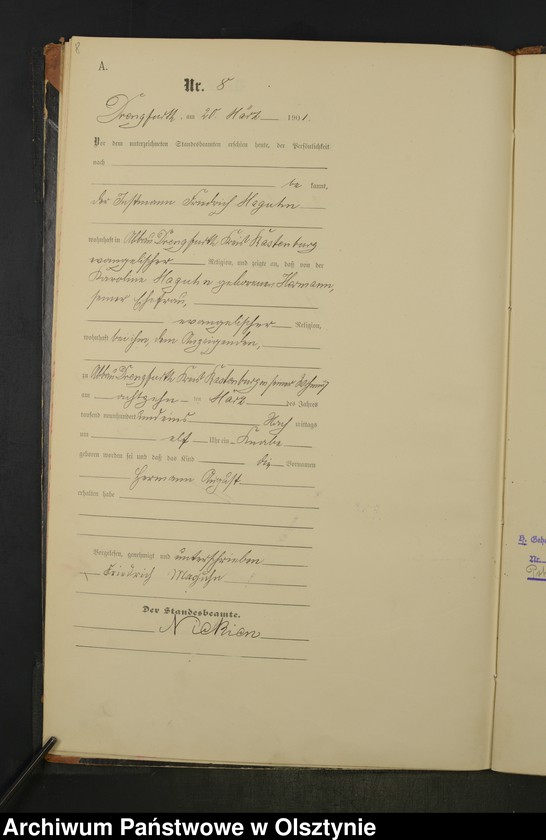 8
A.
Nr. 8
Drengfurth, am 20. März 1901.
Vor dem unterzeichneten Standesbeamten erschien heute, der Persönlichkeit
nach
be kannt,
der Instmann Friedrich Maguhn
wohnhaft in Abbau Drengfurth Kreis Rastenburg
evangelischer Religion, und zeigte an, daß von der
Karoline Maguhn geborenen Hermann,
seiner Ehefrau,
evangelischer Religion,
wohnhaft bei ihm, dem Anzeigenden,
zu Abbau Drengfurth Kreis Rastenburg in seiner Wohnung
am achtzehn ten März des Jahres
tausend neunhundert und eins Nach mittags
um elf Uhr ein Knabe
geboren worden sei und daß das Kind die Vornamen
Hermann August
erhalten habe
Vorgelesen, genehmigt und unterschrieben
Friedrich Maguhn
Der Standesbeamte.
B. Geb
Nr.
Archiwum Państwowe w Olsztynie